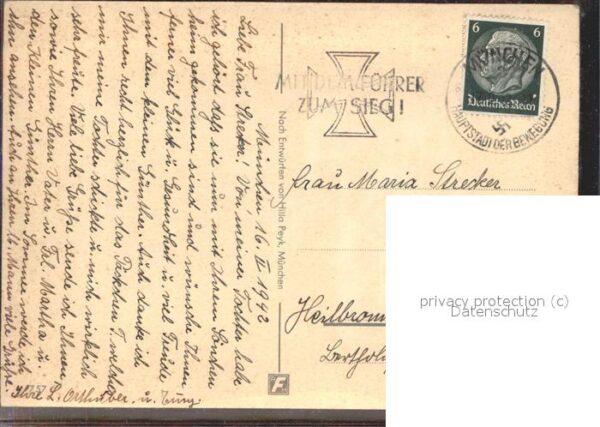 München 16. II 1942
Liebe Frau Strecker! Von meiner Tochter habe
ich gehört daß sie nun mit Ihrem Söhnchen
heim gekommen sind und wünsche Ihnen
ferner viel Glück u. Gesundheit u. viel Freude
mit dem kleinen Günther. Auch danke ich
Ihnen recht herzlich für das Päckchen welches
mir meine Tochter schickte u. mich wirklich
sehr freute. Viele liebe Grüße sende ich Ihnen
sowie Ihrem Herrn Vater u. Frl. Martha u.
den kleinen Günther. Im Sommer werde ich
ihn ansehen. Auch an Ihren lb. Mann viele Grüße.
Ihre L. Orthuber. u.
Nach Entwürfen von Hilla Peyk, München
MIT DEM FÜHRER
ZUM SIEG!
6 6
Deutsches Reich
MÜNCHEN
HAUPTSTADT DER BEWEGUNG
Frau Maria Strecker
Heilbronn
privacy protection (c)
Datenschutz
F